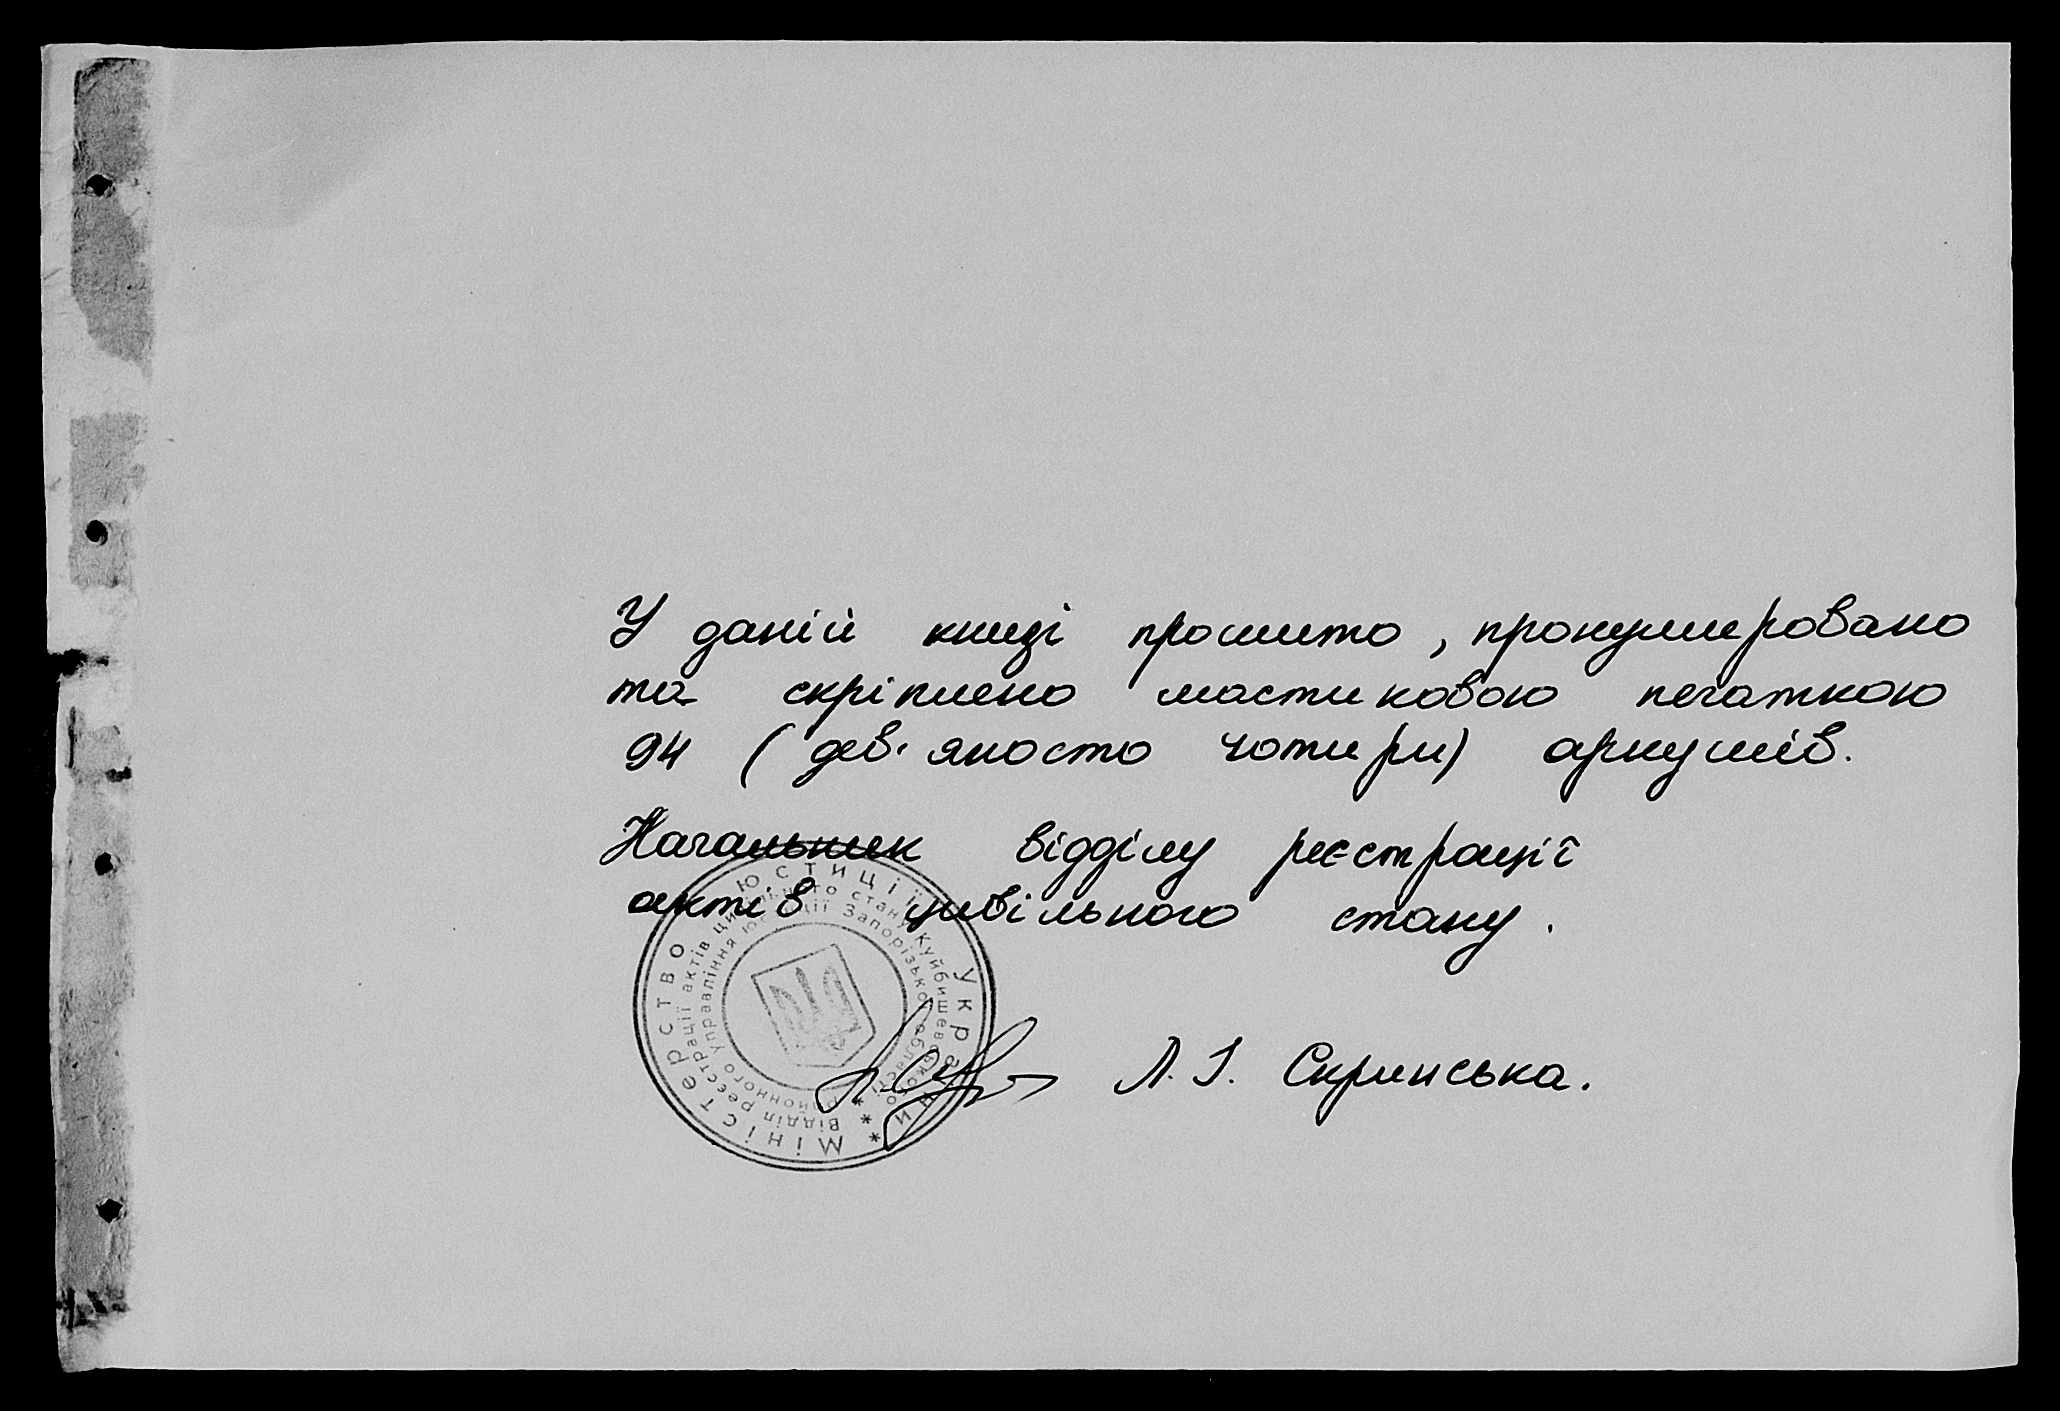 У даній книзі прошито, пронумеровано
та скріплено мастиковою печаткою
94 (дев'яносто чотири) аркушів.
Начальник відділу реєстрації
актів цивільного стану.
Л. І. Скринська.
Міністерство юстиції України
Відділ реєстрації актів цивільного стану Куйбишевського
районного управління юстиції Запорізької області